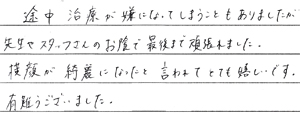 途中治療が嫌になってしまうこともありましたが
先生やスタッフさんのお陰で最後まで頑張れました。
横顔が綺麗になったと言われてとても嬉しいです。
有難うございました。